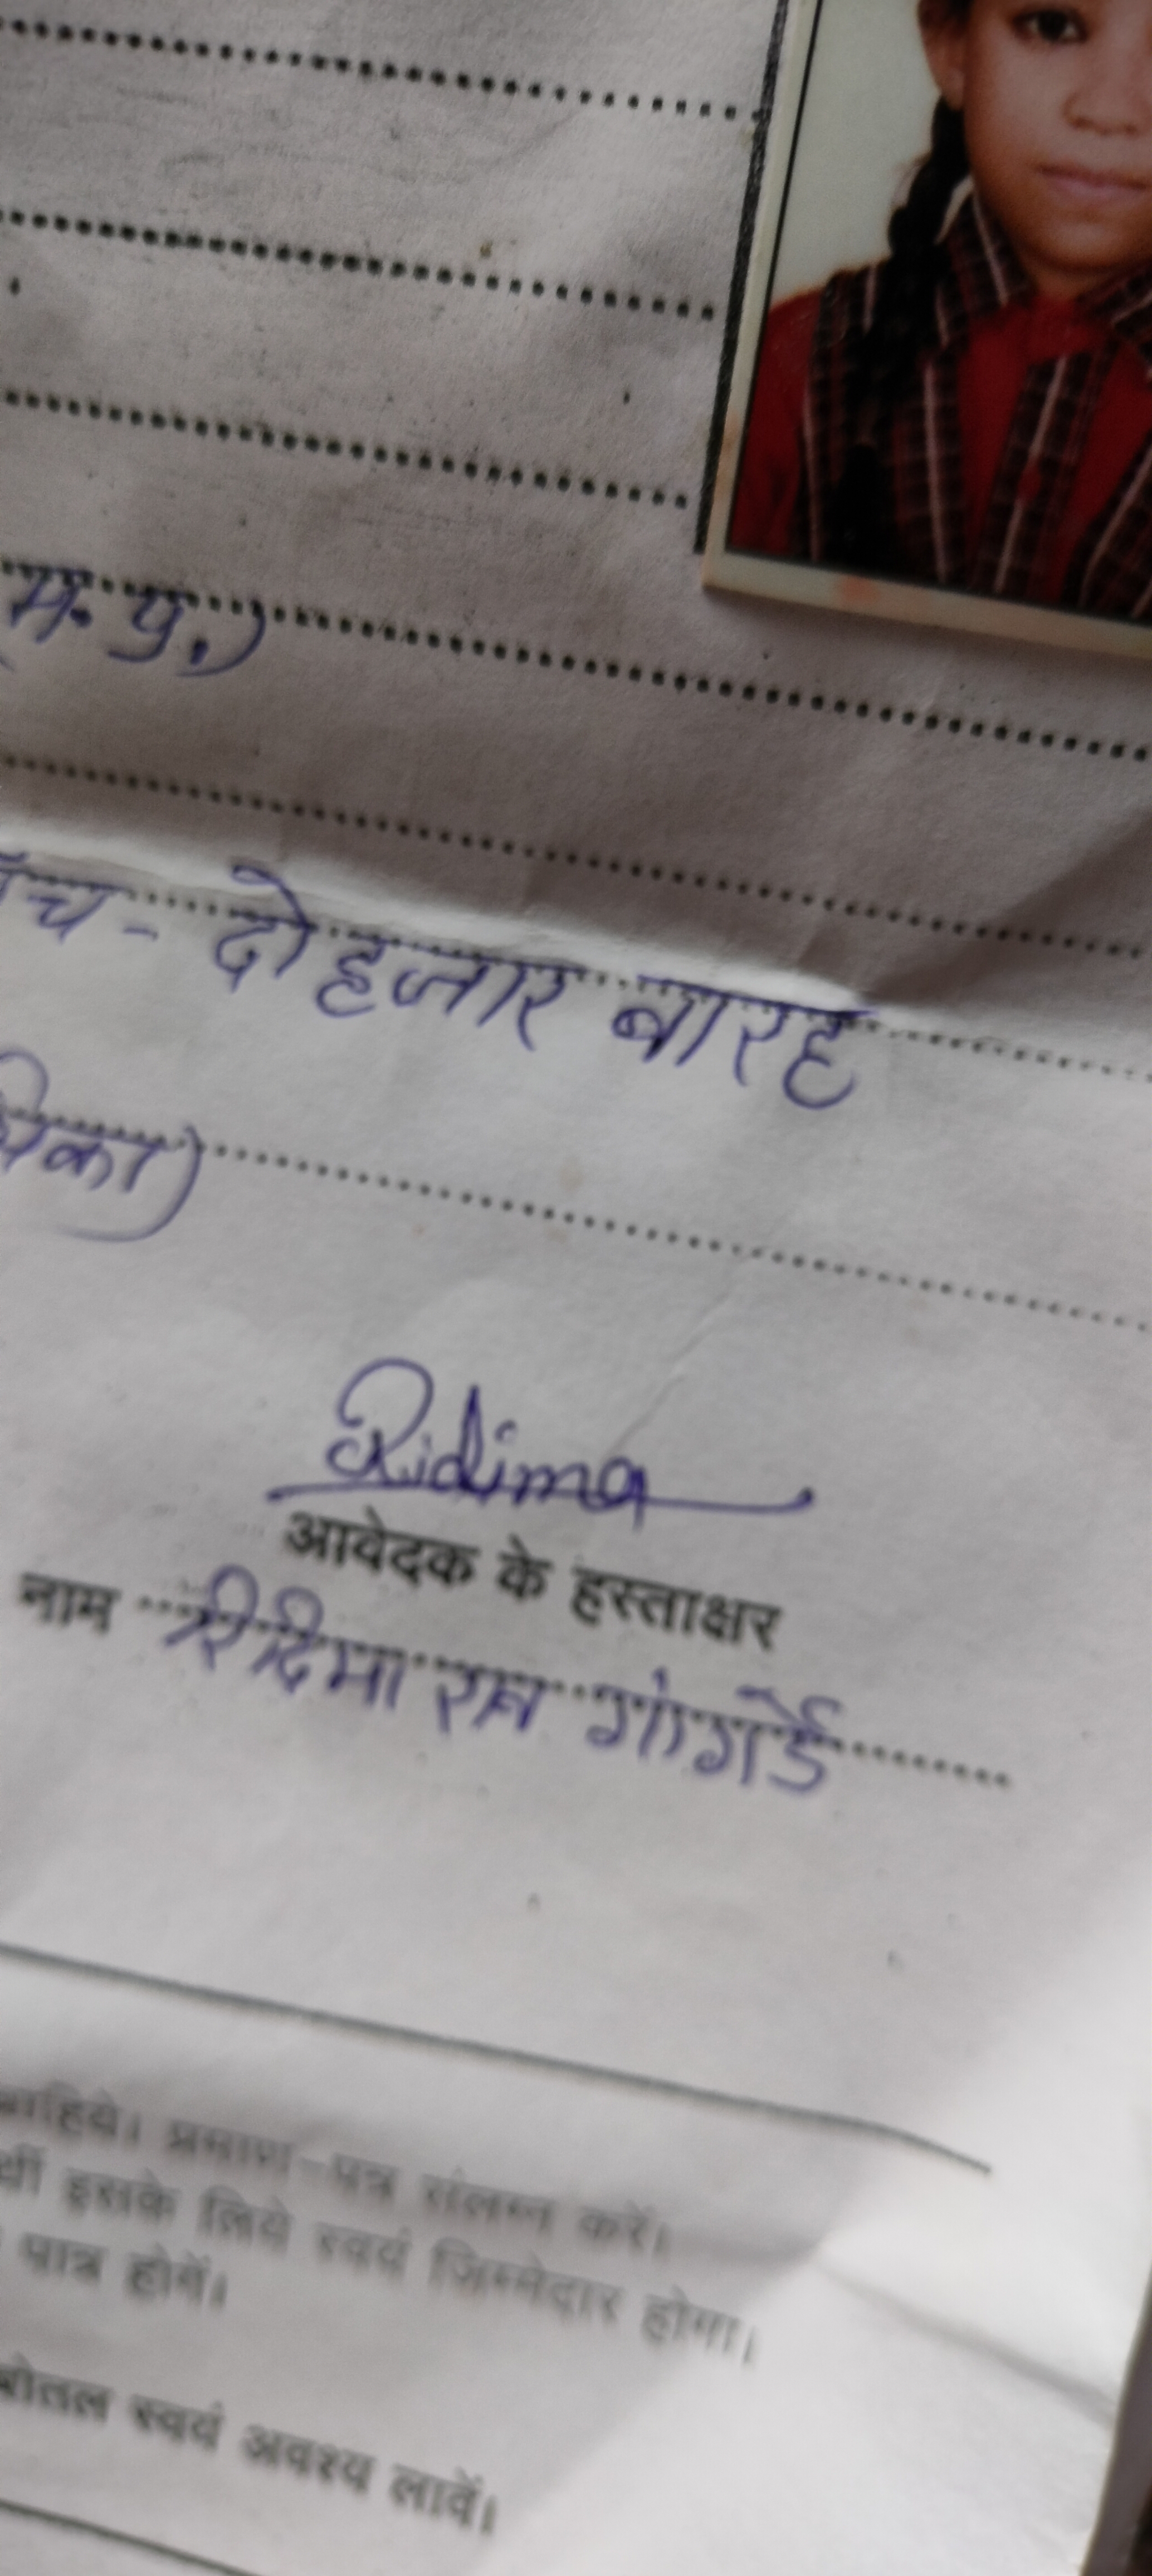 म. प्र.)
च - दो हजार बारह
िका)
Ridima
आवेदक के हस्ताक्षर
नाम रिदिमा रत्न गांगर्डे
चाहिये। प्रमाण-पत्र संलग्न करें।
र्थी इसके लिये स्वयं जिम्मेदार होगा।
पात्र होगें।
बोतल स्वयं अवश्य लावें।